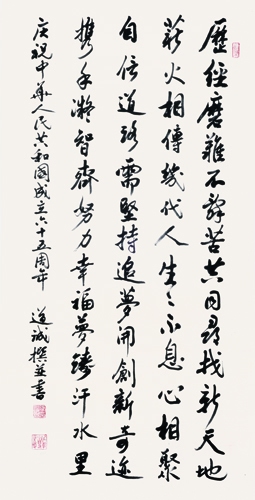 歷經磨難不辭苦共同尋找新天地
薪火相傳幾代人生生不息心相聚
自信道路需堅持追夢開創新奇迹
携手凝智齊努力幸福夢鑄汗水里
庆祝中華人民共和國成立六十五周年 道誠撰並書